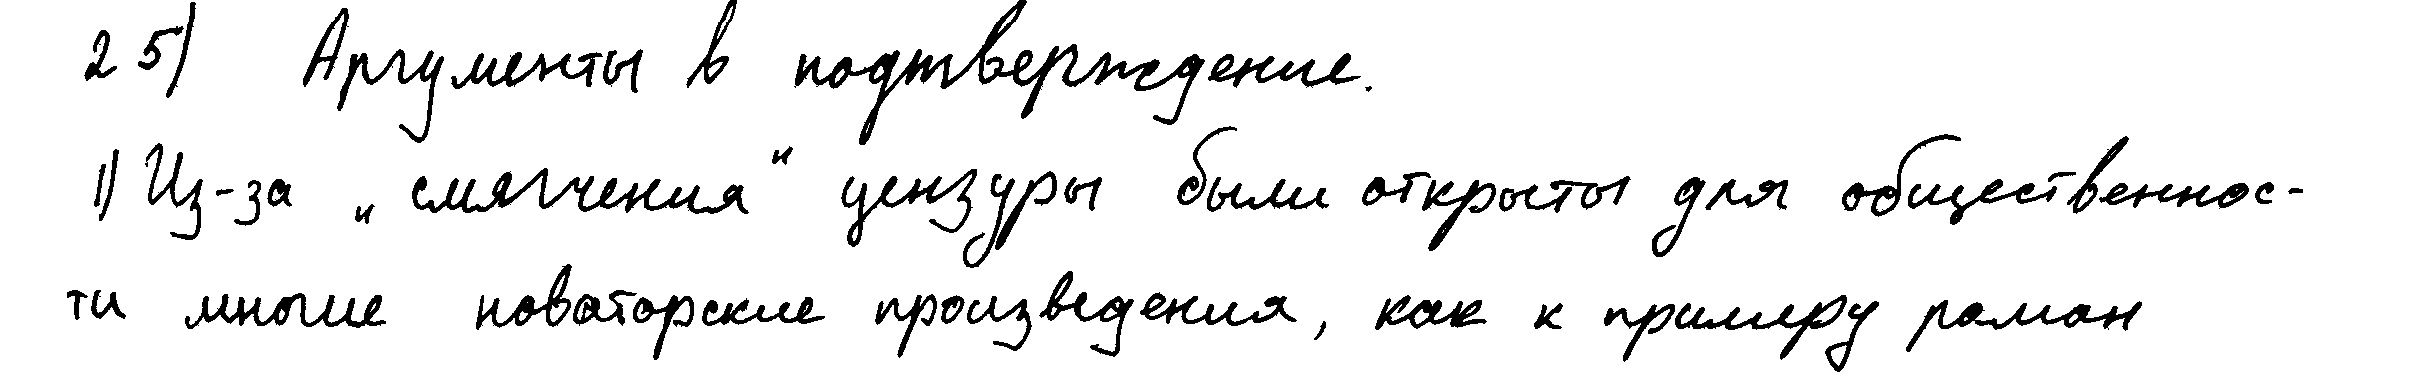 25) Аргументы в подтверждение.
1) Из-за „смягчения“ цензуры были открыты для общественнос-
ти многие новаторские произведения, как к примеру роман